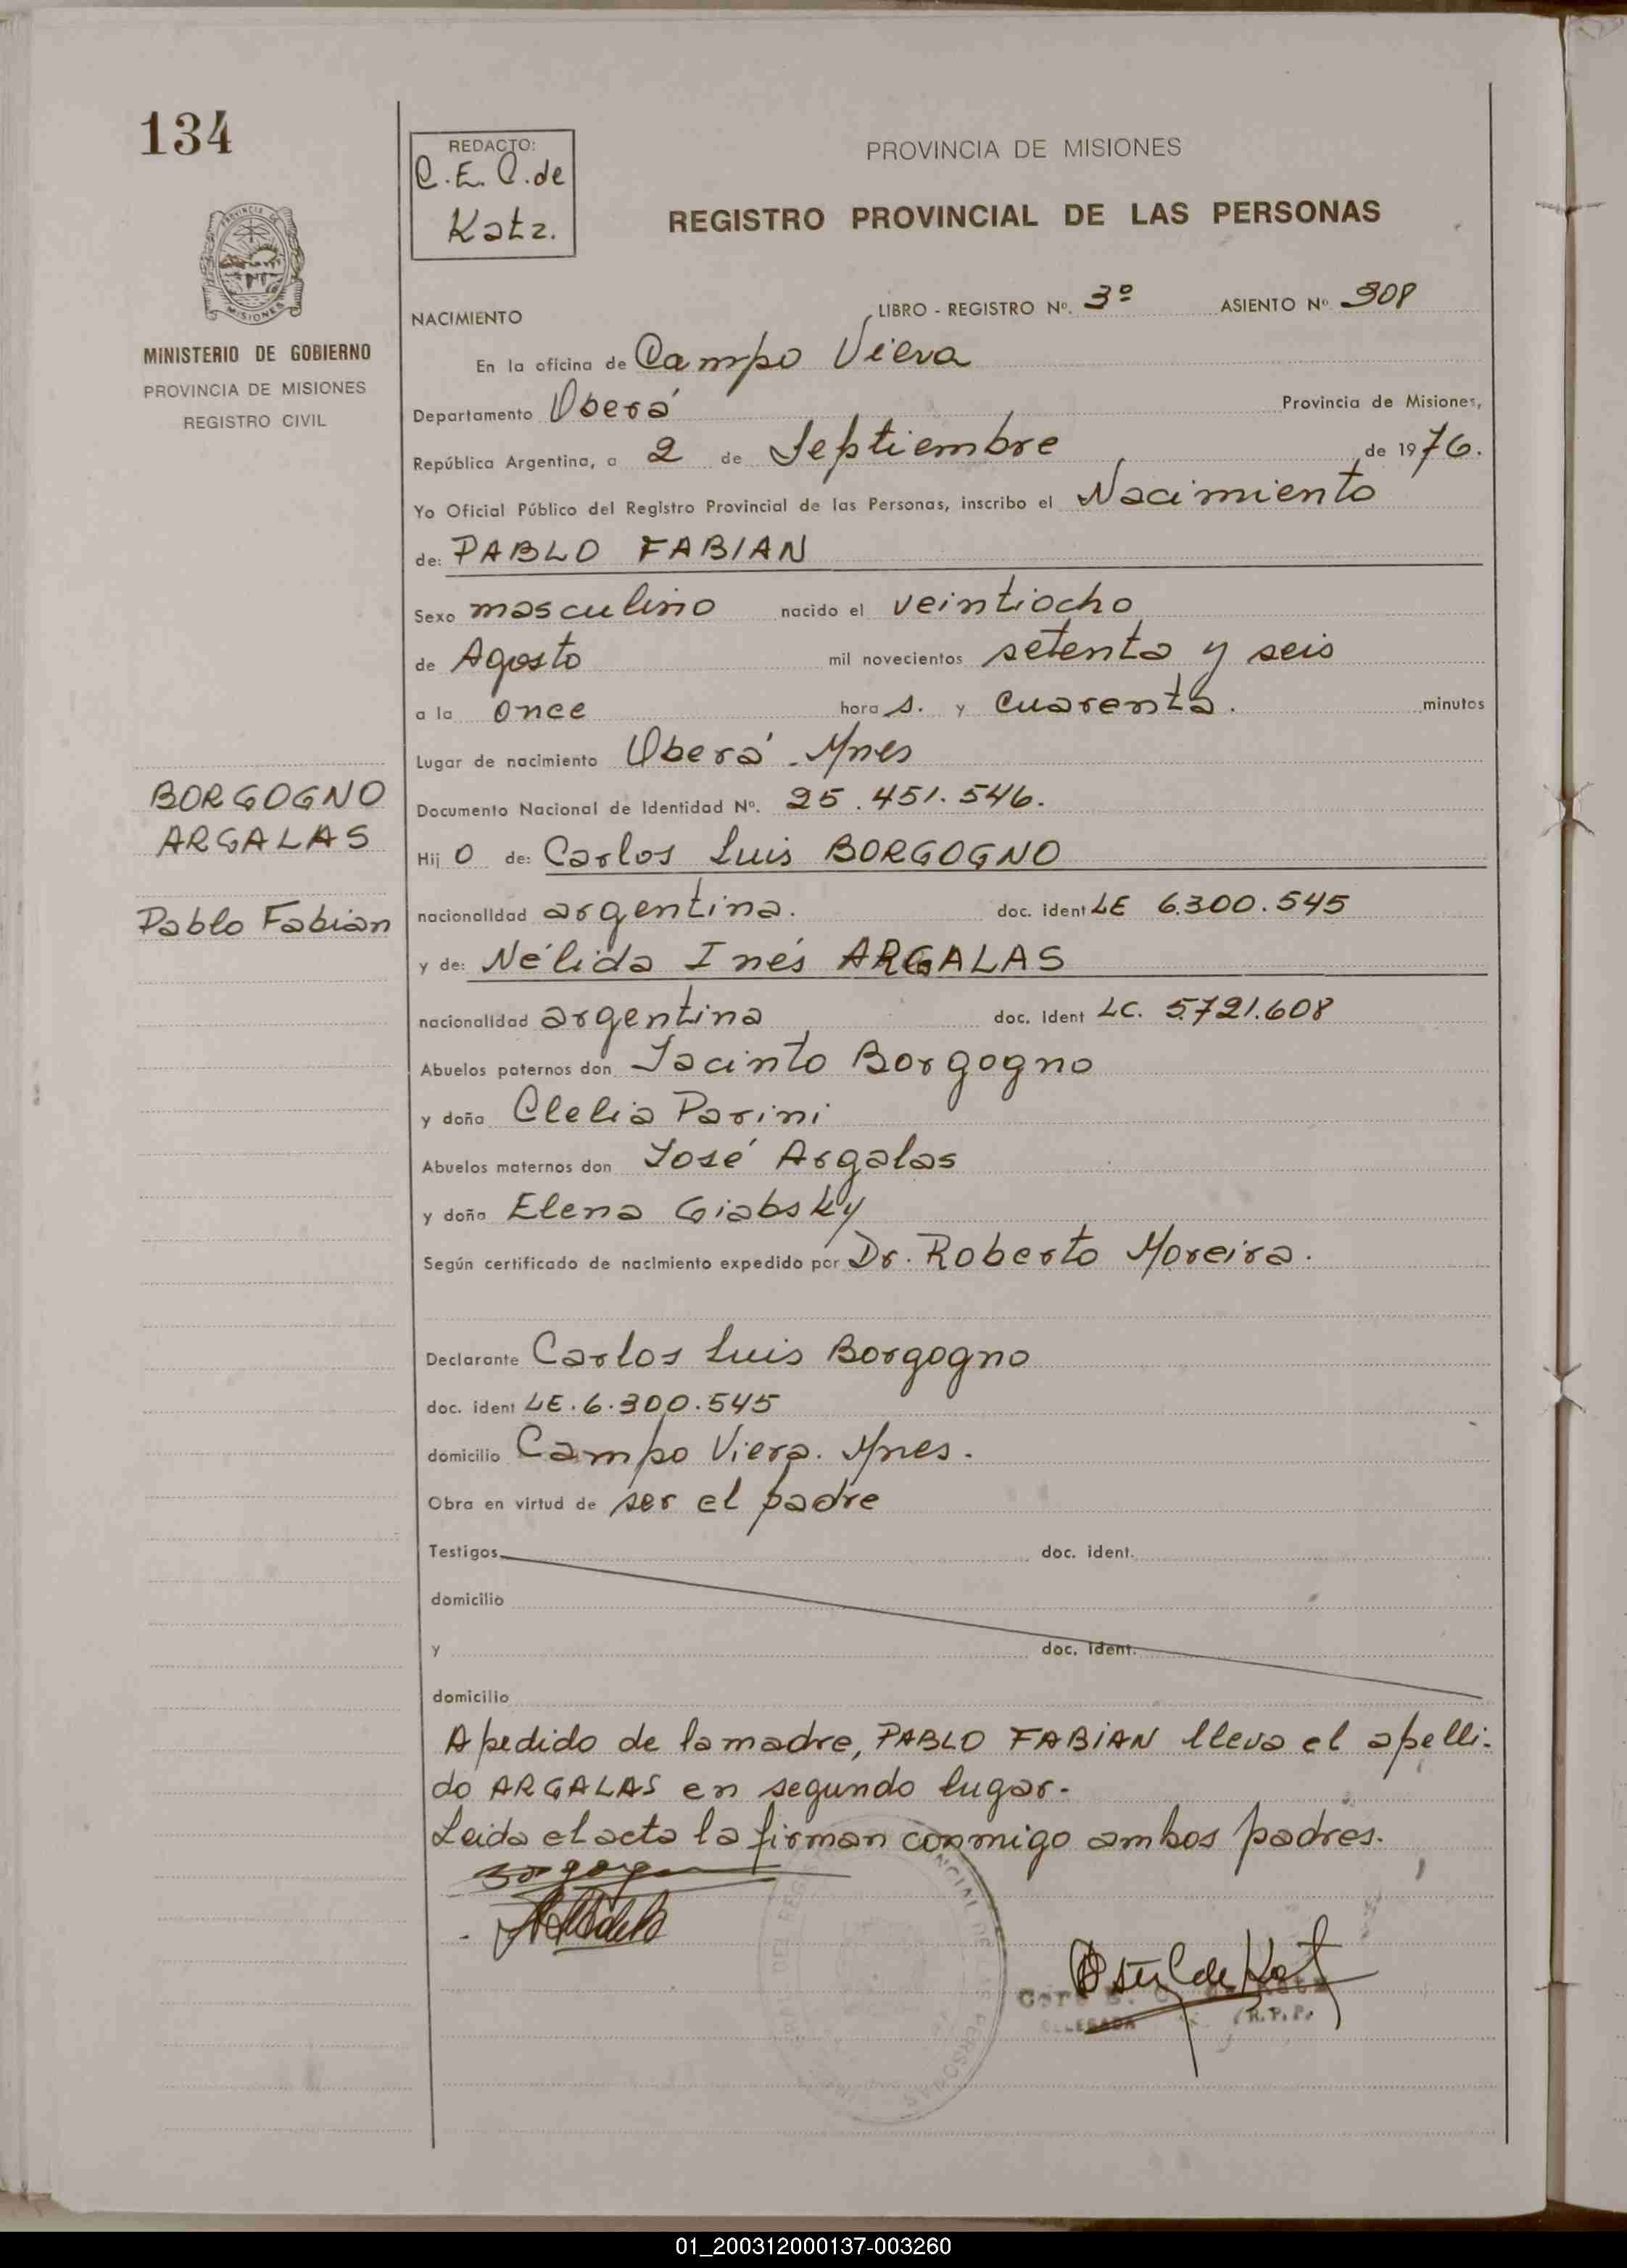 134
REDACTO:
C.E.C. de
Katz.
PROVINCIA DE MISIONES
REGISTRO PROVINCIAL DE LAS PERSONAS
MISIONES
MINISTERIO DE GOBIERNO
PROVINCIA DE MISIONES
REGISTRO CIVIL
NACIMIENTO LIBRO - REGISTRO Nº. 3º ASIENTO Nº 308
En la oficina de Campo Viera
Departamento Oberá Provincia de Misiones,
República Argentina, a 2 de Septiembre de 1976.
Yo Oficial Público del Registro Provincial de las Personas, inscribo el Nacimiento
de: PABLO FABIAN
Sexo masculino nacido el veintiocho
de Agosto mil novecientos setenta y seis
a la once hora s. y cuarenta. minutos
Lugar de nacimiento Oberá Mnes
Documento Nacional de Identidad Nº. 25.451.546.
BORGOGNO
ARGALAS
Pablo Fabian
Hij o de: Carlos Luis BORGOGNO
nacionalidad argentina. doc. ident LE 6.300.545
y de: Nélida Inés ARGALAS
nacionalidad argentina doc. ident LC. 5.721.608
Abuelos paternos don Jacinto Borgogno
y doña Clelia Parini
Abuelos maternos don José Argalas
y doña Elena Giabsky
Según certificado de nacimiento expedido por Dr. Roberto Moreira.
Declarante Carlos Luis Borgogno
doc. ident LE.6.300.545
domicilio Campo Viera. Mnes.
Obra en virtud de ser el padre
Testigos doc. ident.
domicilio
y doc. ident.
domicilio
A pedido de la madre, PABLO FABIAN lleva el apelli-
do ARGALAS en segundo lugar.
Leida el acta la firman conmigo ambos padres.
(R.P.P.)
01_200312000137-003260